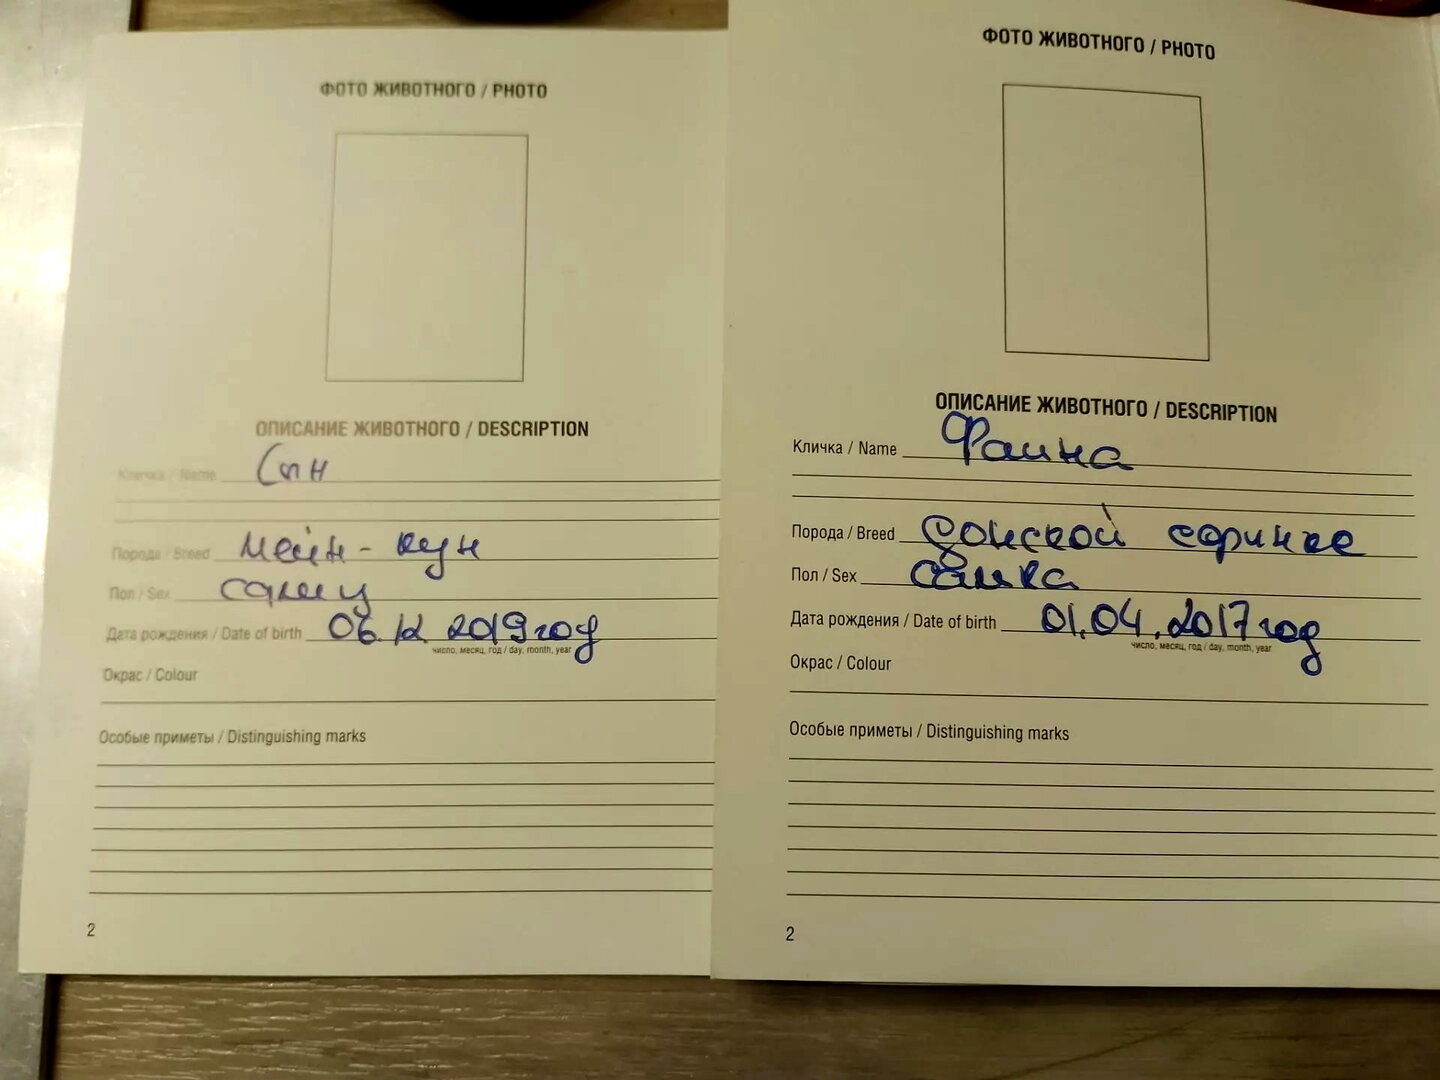 ФОТО ЖИВОТНОГО / PHOTO
ОПИСАНИЕ ЖИВОТНОГО / DESCRIPTION
Кличка / Name Сын
Порода / Breed мейн-кун
Пол / Sex самец
Дата рождения / Date of birth 06.12 2019 год
число, месяц, год / day, month, year
Окрас / Colour
Особые приметы / Distinguishing marks
2
ФОТО ЖИВОТНОГО / PHOTO
ОПИСАНИЕ ЖИВОТНОГО / DESCRIPTION
Кличка / Name Фаина
Порода / Breed донской сфинкс
Пол / Sex самка
Дата рождения / Date of birth 01.04.2017 год
число, месяц, год / day, month, year
Окрас / Colour
Особые приметы / Distinguishing marks
2